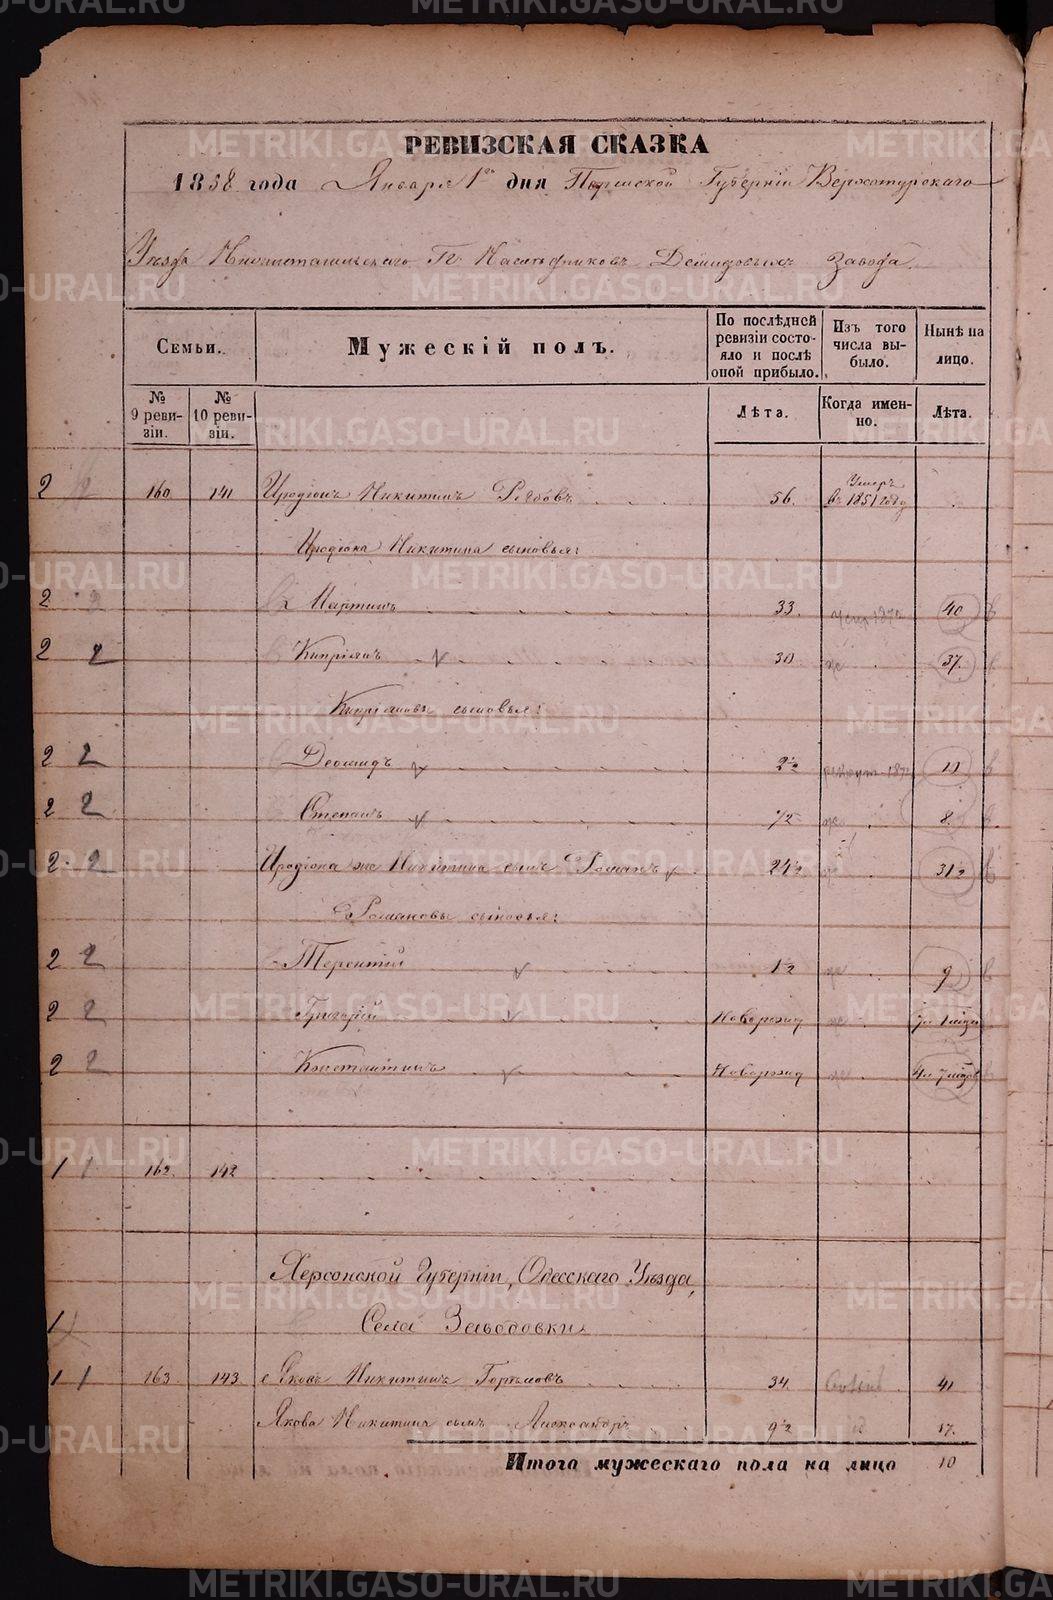 РЕВИЗСКАЯ СКАЗКА
1858 года Января 1го дня Пермской Губерніи Верхотурскаго
Уѣзда Нижнетагильскаго Гг. Наслѣдниковъ Демидовыхъ завода.
Семьи. Мужескій полъ. По послѣдней ревизіи состояло и послѣ оной прибыло. Изъ того числа выбыло. Нынѣ на лицо.
№ 9 ревизіи. № 10 ревизіи. Лѣта. Когда именно. Лѣта.
2 160 141 Иродіонъ Никитинъ Рябовъ 56. Умеръ въ 1851 году
Иродіона Никитина сыновья:
2 2 Мартинъ 33. 40
2 2 Кипріянъ 30 37.
Кипріяновы сыновья:
2 2 Деомидъ 2½ 10
2 2 Степанъ ½ 8.
2 2 Иродіона же Никитина сынъ Романъ 24½ 31½
Романовы сыновья:
2 2 Терентій 1½ 9
2 2 Григорій Новорожд
2 2 Константинъ Новорожд
1 1 162. 142
Херсонской Губерніи, Одесскаго Уѣзда,
1 Села Заводовки
1 1 163 143 Яковъ Никитинъ 34. 41
Якова Никитина сынъ Александръ 9½ 17.
Итого мужескаго пола на лицо 10
METRIKI.GASO-URAL.RU